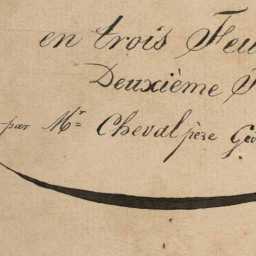 en trois Feu
Deuxième F
par Mr Cheval père Géo